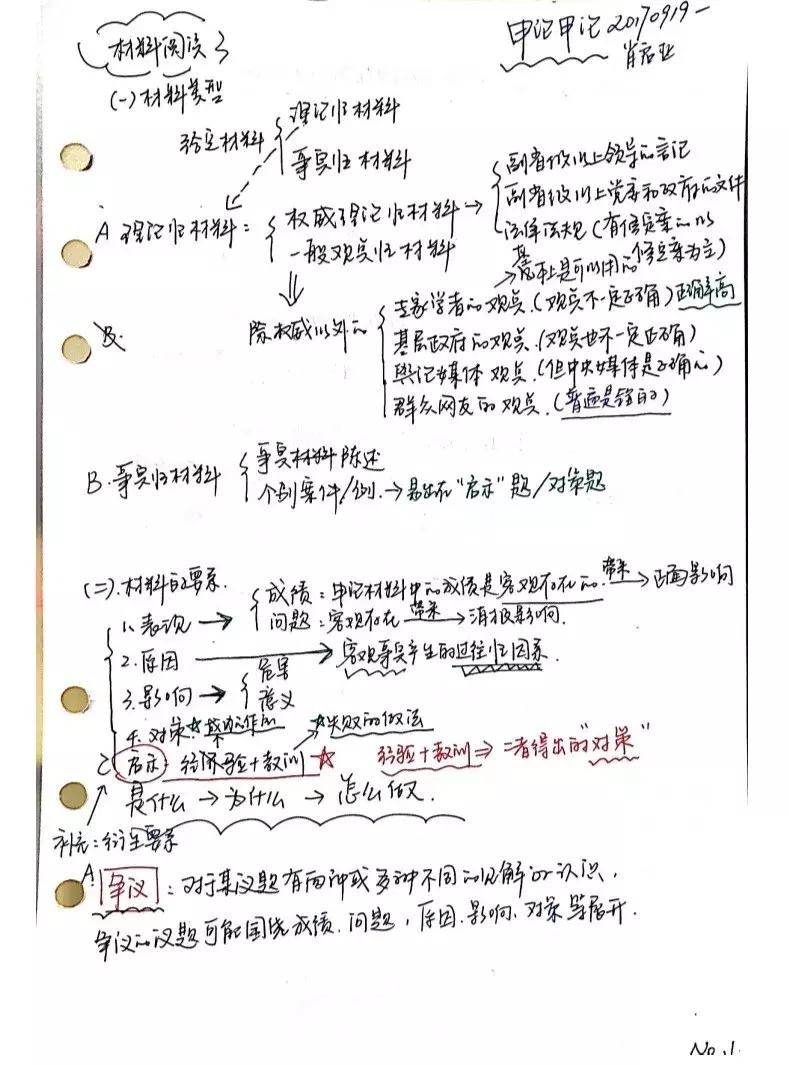 材料阅读
申论笔记 20170919-
(一)材料类型
给定材料
理论性材料
事实性材料
副省级以上领导的言论
副省级以上党委和政府的文件
法律法规(有修改案的以修正案为主)
基本上是可以用的
A 理论性材料:
权威理论性材料→
一般观点性材料
除权威以外的
专家学者的观点.(观点不一定正确)正确率高
基层政府的观点.(观点也不一定正确)
舆论媒体观点.(但中央媒体是正确的)
群众网友的观点.(普遍是错的)
B.
B.事实性材料
事实材料陈述
个别案件/例.→易出在"启示"题/对策题
(二).材料的要素.
1.表现→
成绩:申论材料中的成绩是客观存在的.带来→正面影响
问题:客观存在带来→消极影响.
2.原因→客观事实产生的过往性因素.
3.影响→
危害
意义
4.对策☆成功运作的
☆失败的做法
C 启示 经济验+教训☆ 经验+教训⇒二者得出的"对策"
是什么→为什么→怎么做.
补充:衍生要素
A.争议:对于某议题有两种或多种不同的见解or认识.
争议的议题可能围绕成绩.问题,原因.影响.对策等展开.
No.1